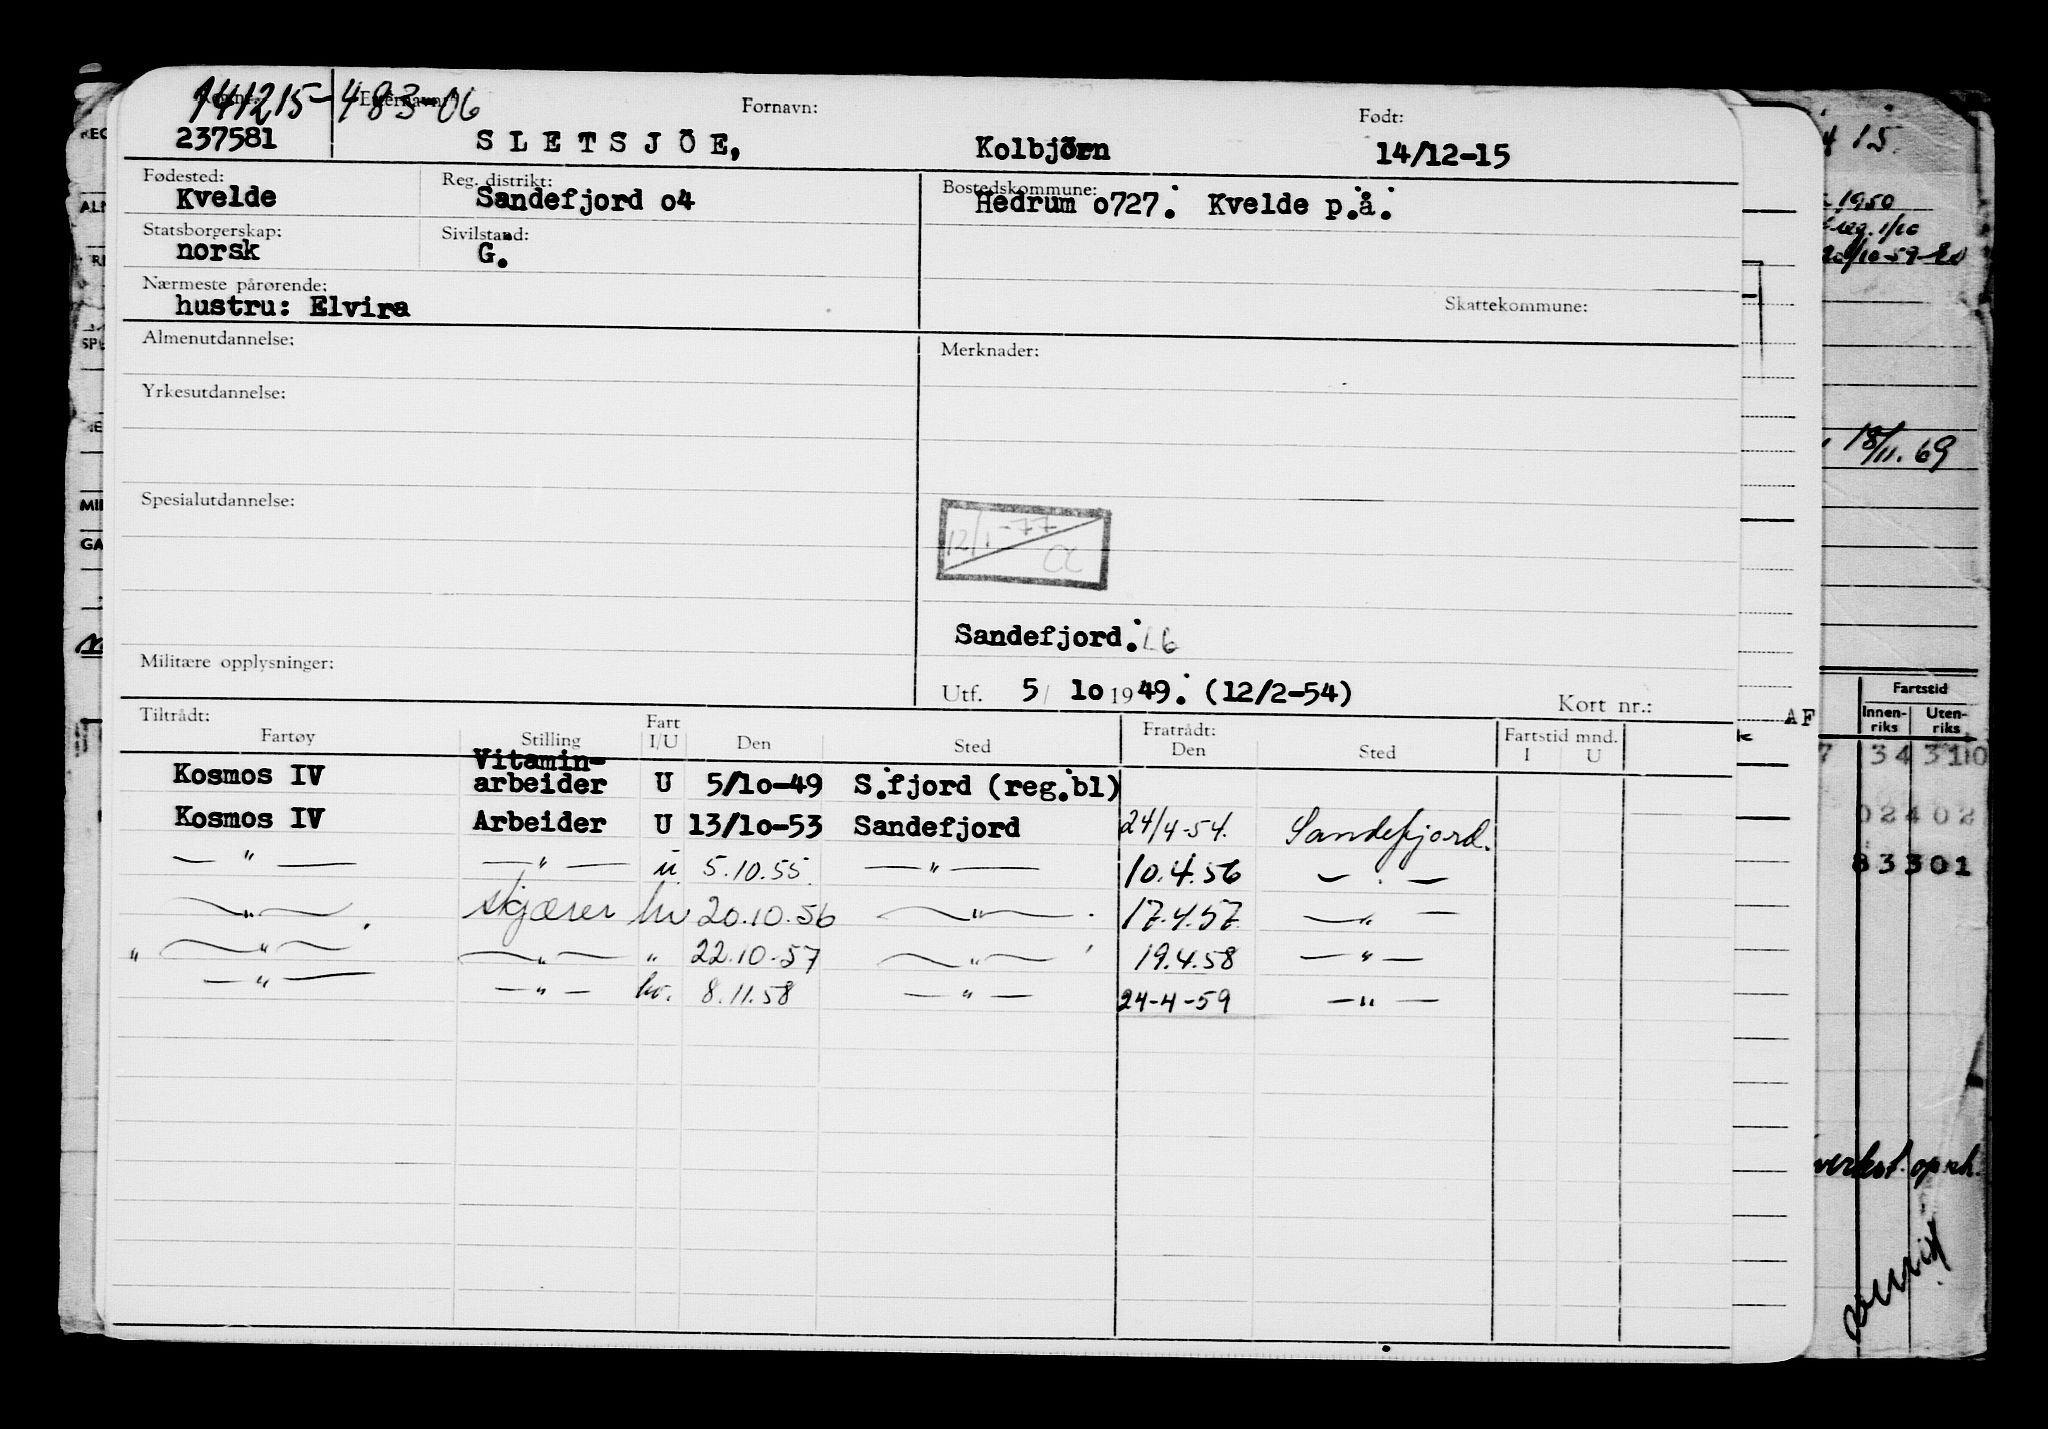 141215-483-06
Regnr. Etternavn: Fornavn: Født:
237581 SLETSJÖE, Kolbjörn 14/12-15
Fødested: Reg. distrikt: Bostedskommune:
Kvelde Sandefjord o4 Hedrum o727. Kvelde p.å.
Statsborgerskap: Sivilstand:
norsk G.
Nærmeste pårørende: Skattekommune:
hustru: Elvira
Almenutdannelse: Merknader:
Yrkesutdannelse:
Spesialutdannelse:
12/1-77
Sandefjord.
Militære opplysninger:
Utf. 5/ lo 1949. (12/2-54) Kort nr.:
Tiltrådt: Fratrådt:
Fartøy Stilling Fart I/U Den Sted Den Sted Fartstid mnd. I U
Kosmos IV Vitamin-arbeider U 5/lo-49 S.fjord (reg.bl)
Kosmos IV Arbeider U 13/lo-53 Sandefjord 24/4-54. Sandefjord.
— " — — " — u 5.10.55. — " — 10.4.56 — " —
— " — skjærer hv 20.10.56 — " — 17.4.57 — " —
" — " — — " — " 22.10.57 — " — 19.4.58 — " —
— " — — " — hv. 8.11.58 — " — 24-4-59 — " —
15.
1950
reg. 1/10
18/11.69
REG
MIL
GA
AF
Fartstid
Innen-riks Uten-riks
7 34 3110
02402
83301